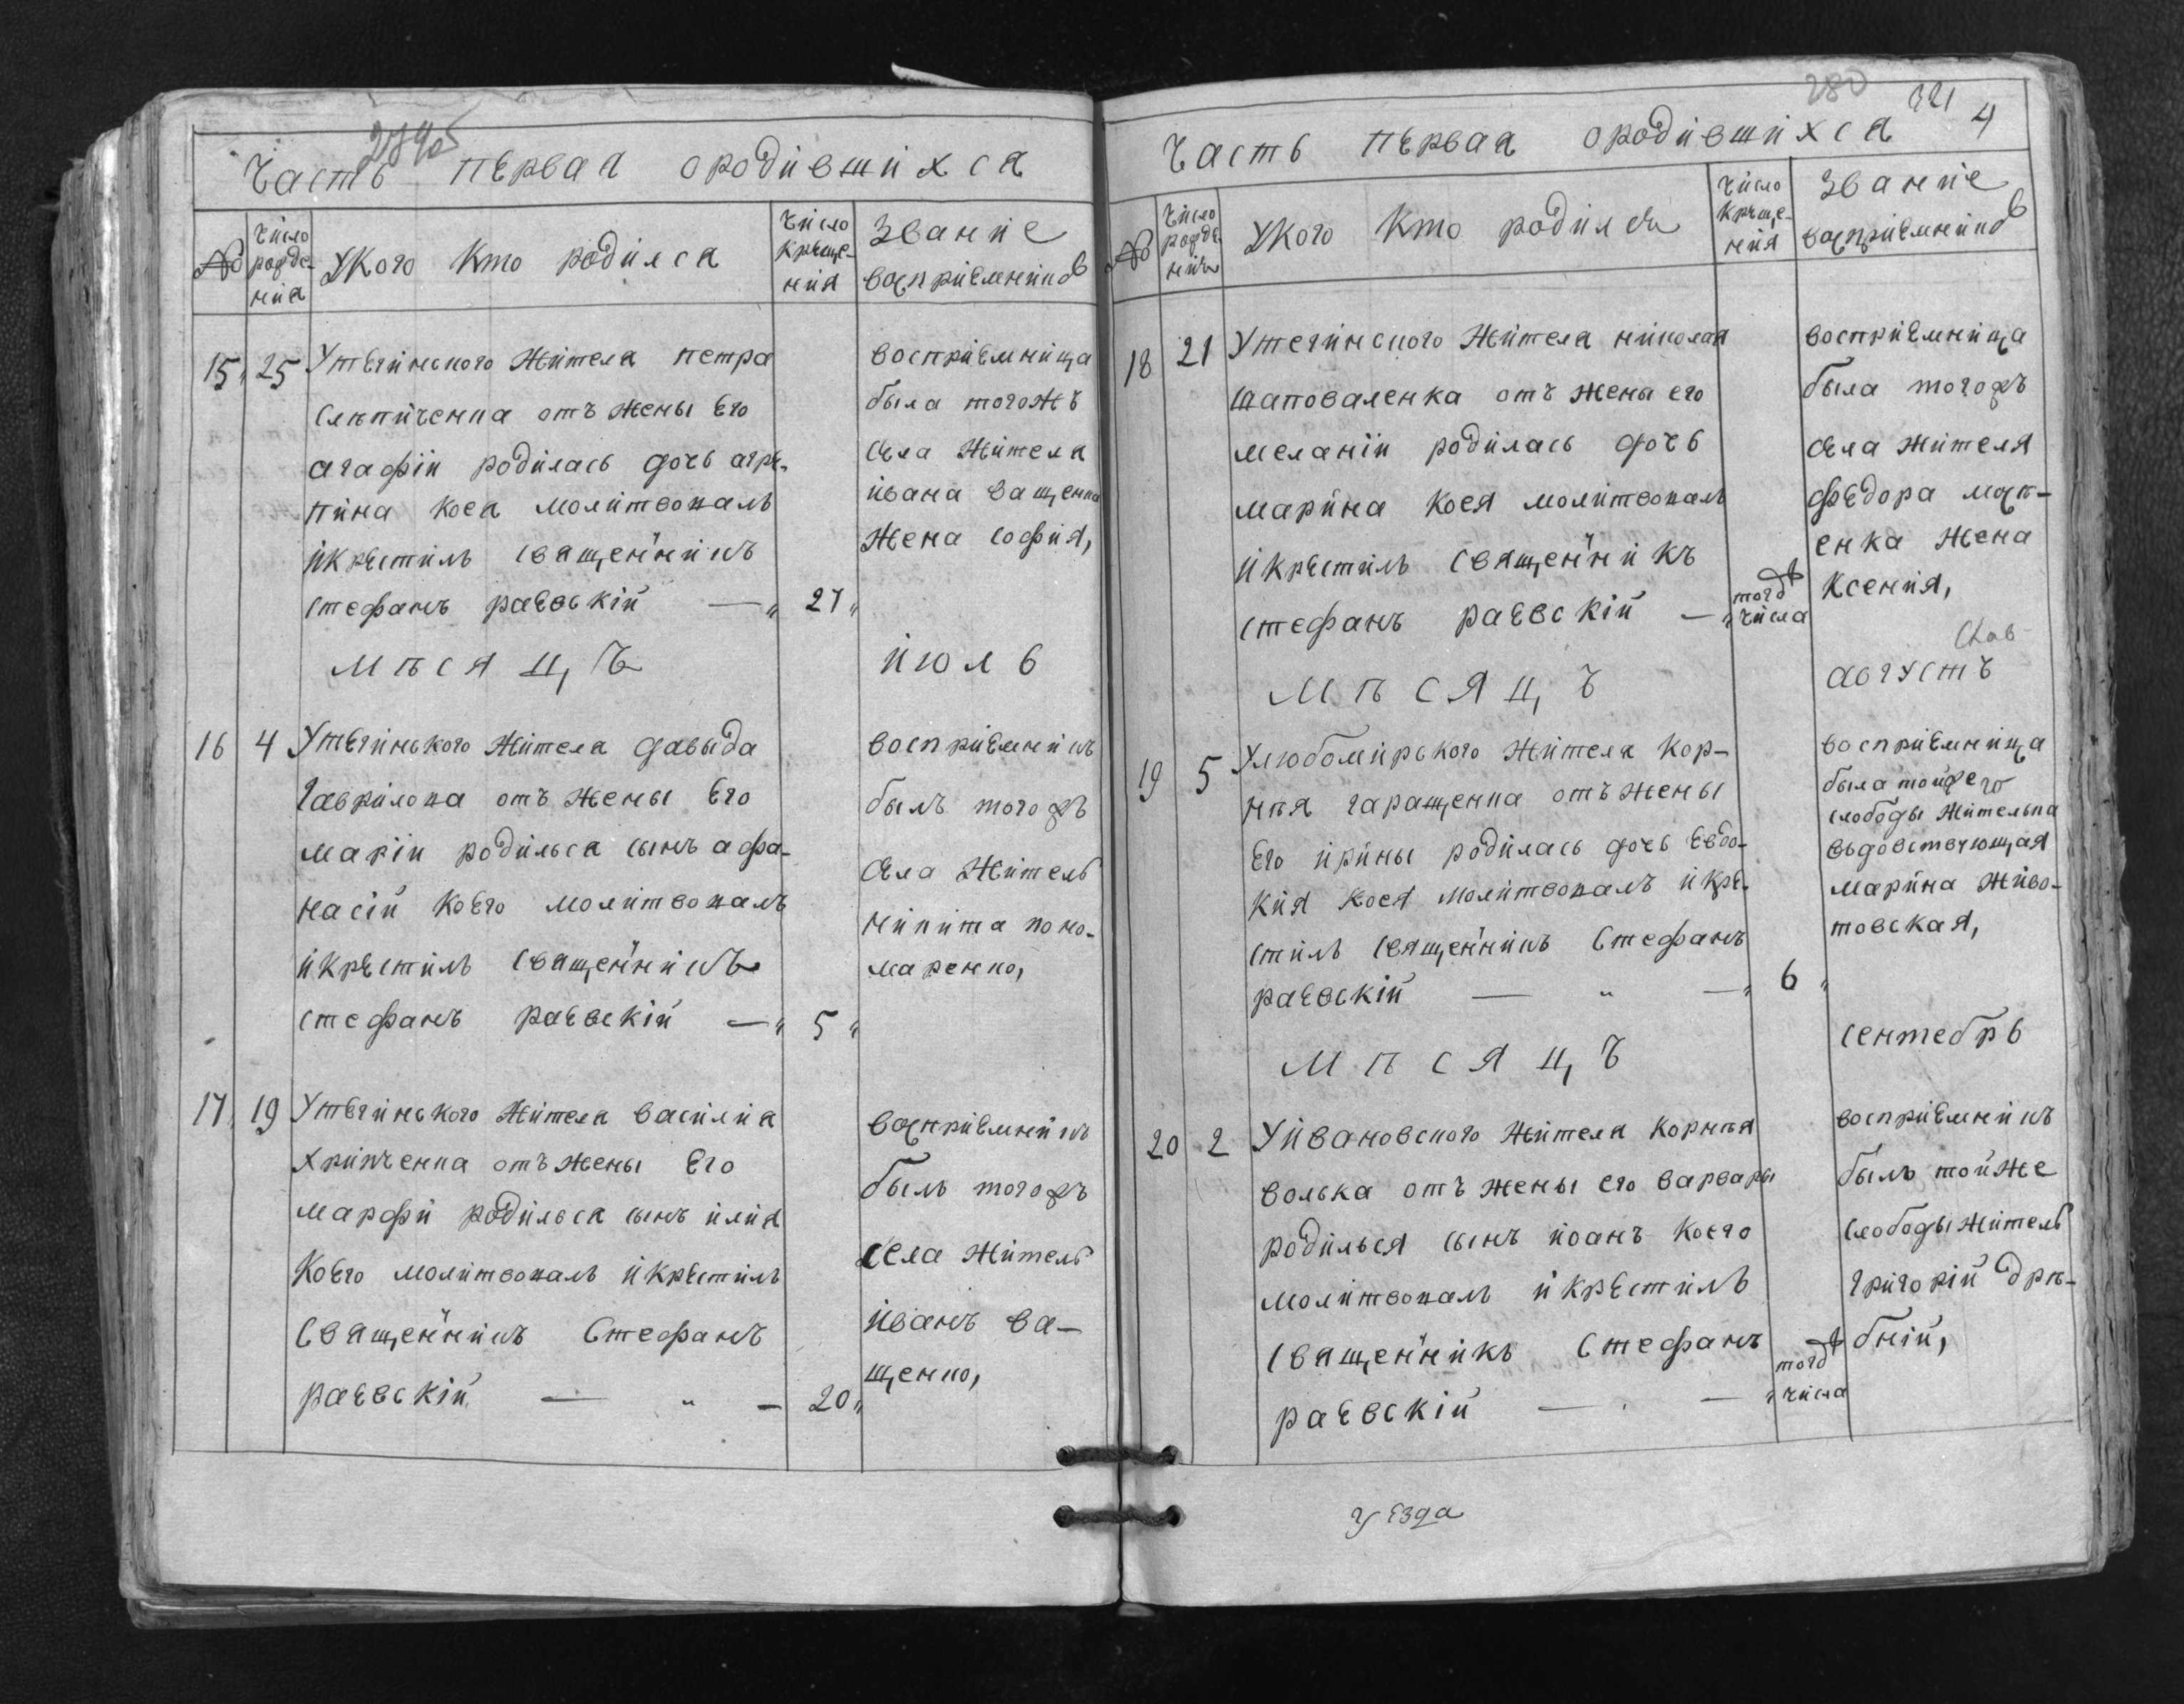 279об
Часть первая ородившихся
№
число
рожде-
ния
Укого кто родился
число
креще-
ния
Звание
восприемников
15 25 Утегинского жителя петра
слепиченка отъ жены Его
агафіи родилась дочь агре-
пина коея молитвовалъ
икрестилъ священникъ
стефанъ раевскій — 27
восприемница
была тогожъ
села жителя
ивана ващенка
жена софия,
мѣсяцъ июль
16 4 Утегинского жителя давыда
гаврилова отъ жены Его
маріи родился сынъ афа-
насій коего молитвовалъ
икрестилъ священникъ
стефанъ раевскій — 5
восприемникъ
былъ тогожъ
села житель
никита поно-
маренко,
17 19 Утегинского жителя василия
хрипченка отъ жены Его
марфи родился сынъ илия
коего молитвовалъ икрестилъ
священникъ Стефанъ
раевскій — " — 20
восприемникъ
былъ тогожъ
села житель
иванъ ва-
щенко,
280 321 4
Часть первая ородившихся
№
число
рожде-
ния
Укого кто родился
число
креще-
ния
Звание
восприемников
18 21 Утегинского жителя николая
шаповаленка отъ жены его
меланіи родилась дочь
марина коея молитвовалъ
икрестилъ священникъ
стефанъ раевскій —
того ж
числа
восприемница
была тогожъ
села жителя
федора
енка жена
ксения,
мѣсяцъ августъ
19 5 Улюбомирского жителя кор-
нѣя гаращенка отъ жены
Его ирины родилась дочь Евдо-
кия коея молитвовалъ икре-
стилъ священникъ Стефанъ
раевскій — " — 6
восприемница
была тойже
слободы жителька
вьдовствующая
марина живо-
товская,
мѣсяцъ сентебрь
20 2 Уивановского жителя корнѣя
волька отъ жены его варвары
родился сынъ иоанъ коего
молитвовалъ икрестилъ
священникъ Стефанъ
раевскій —
того ж
числа
восприемникъ
былъ тойже
слободы житель
григорій дрѣ-
бній,
уезда